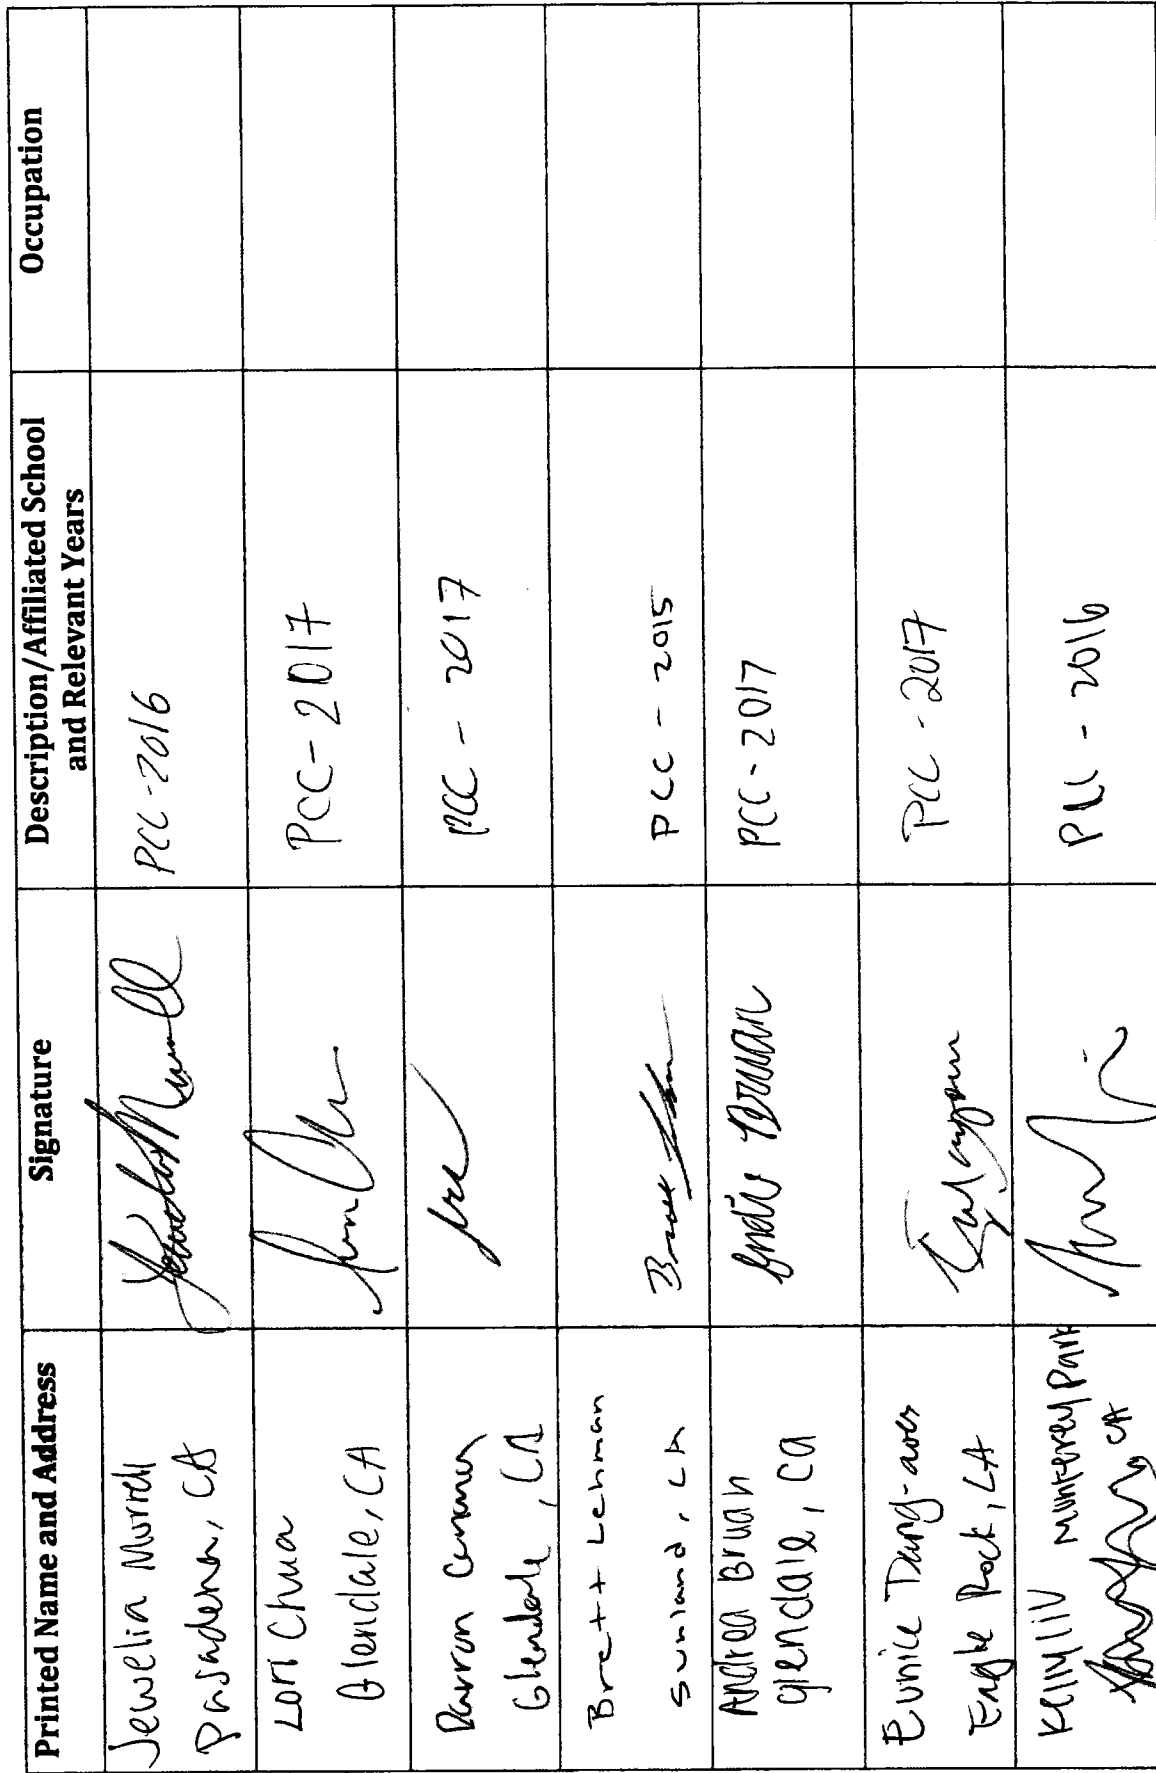 Printed Name and Address
Signature
Description/Affiliated School
and Relevant Years
Occupation
Jewelia Murrell
Pasadena, CA
PCC - 2016
Lori Chua
Glendale, CA
PCC - 2017
Darron
Glendale, CA
PCC - 2017
Brett Lehman
Sunland, CA
Brett
PCC - 2015
Andrea Bruan
glendale, ca
Bruan
PCC - 2017
Eunice Dang-
Eagle Rock, CA
PCC - 2017
Kelly liv Monterey Park
CA
PCC - 2016